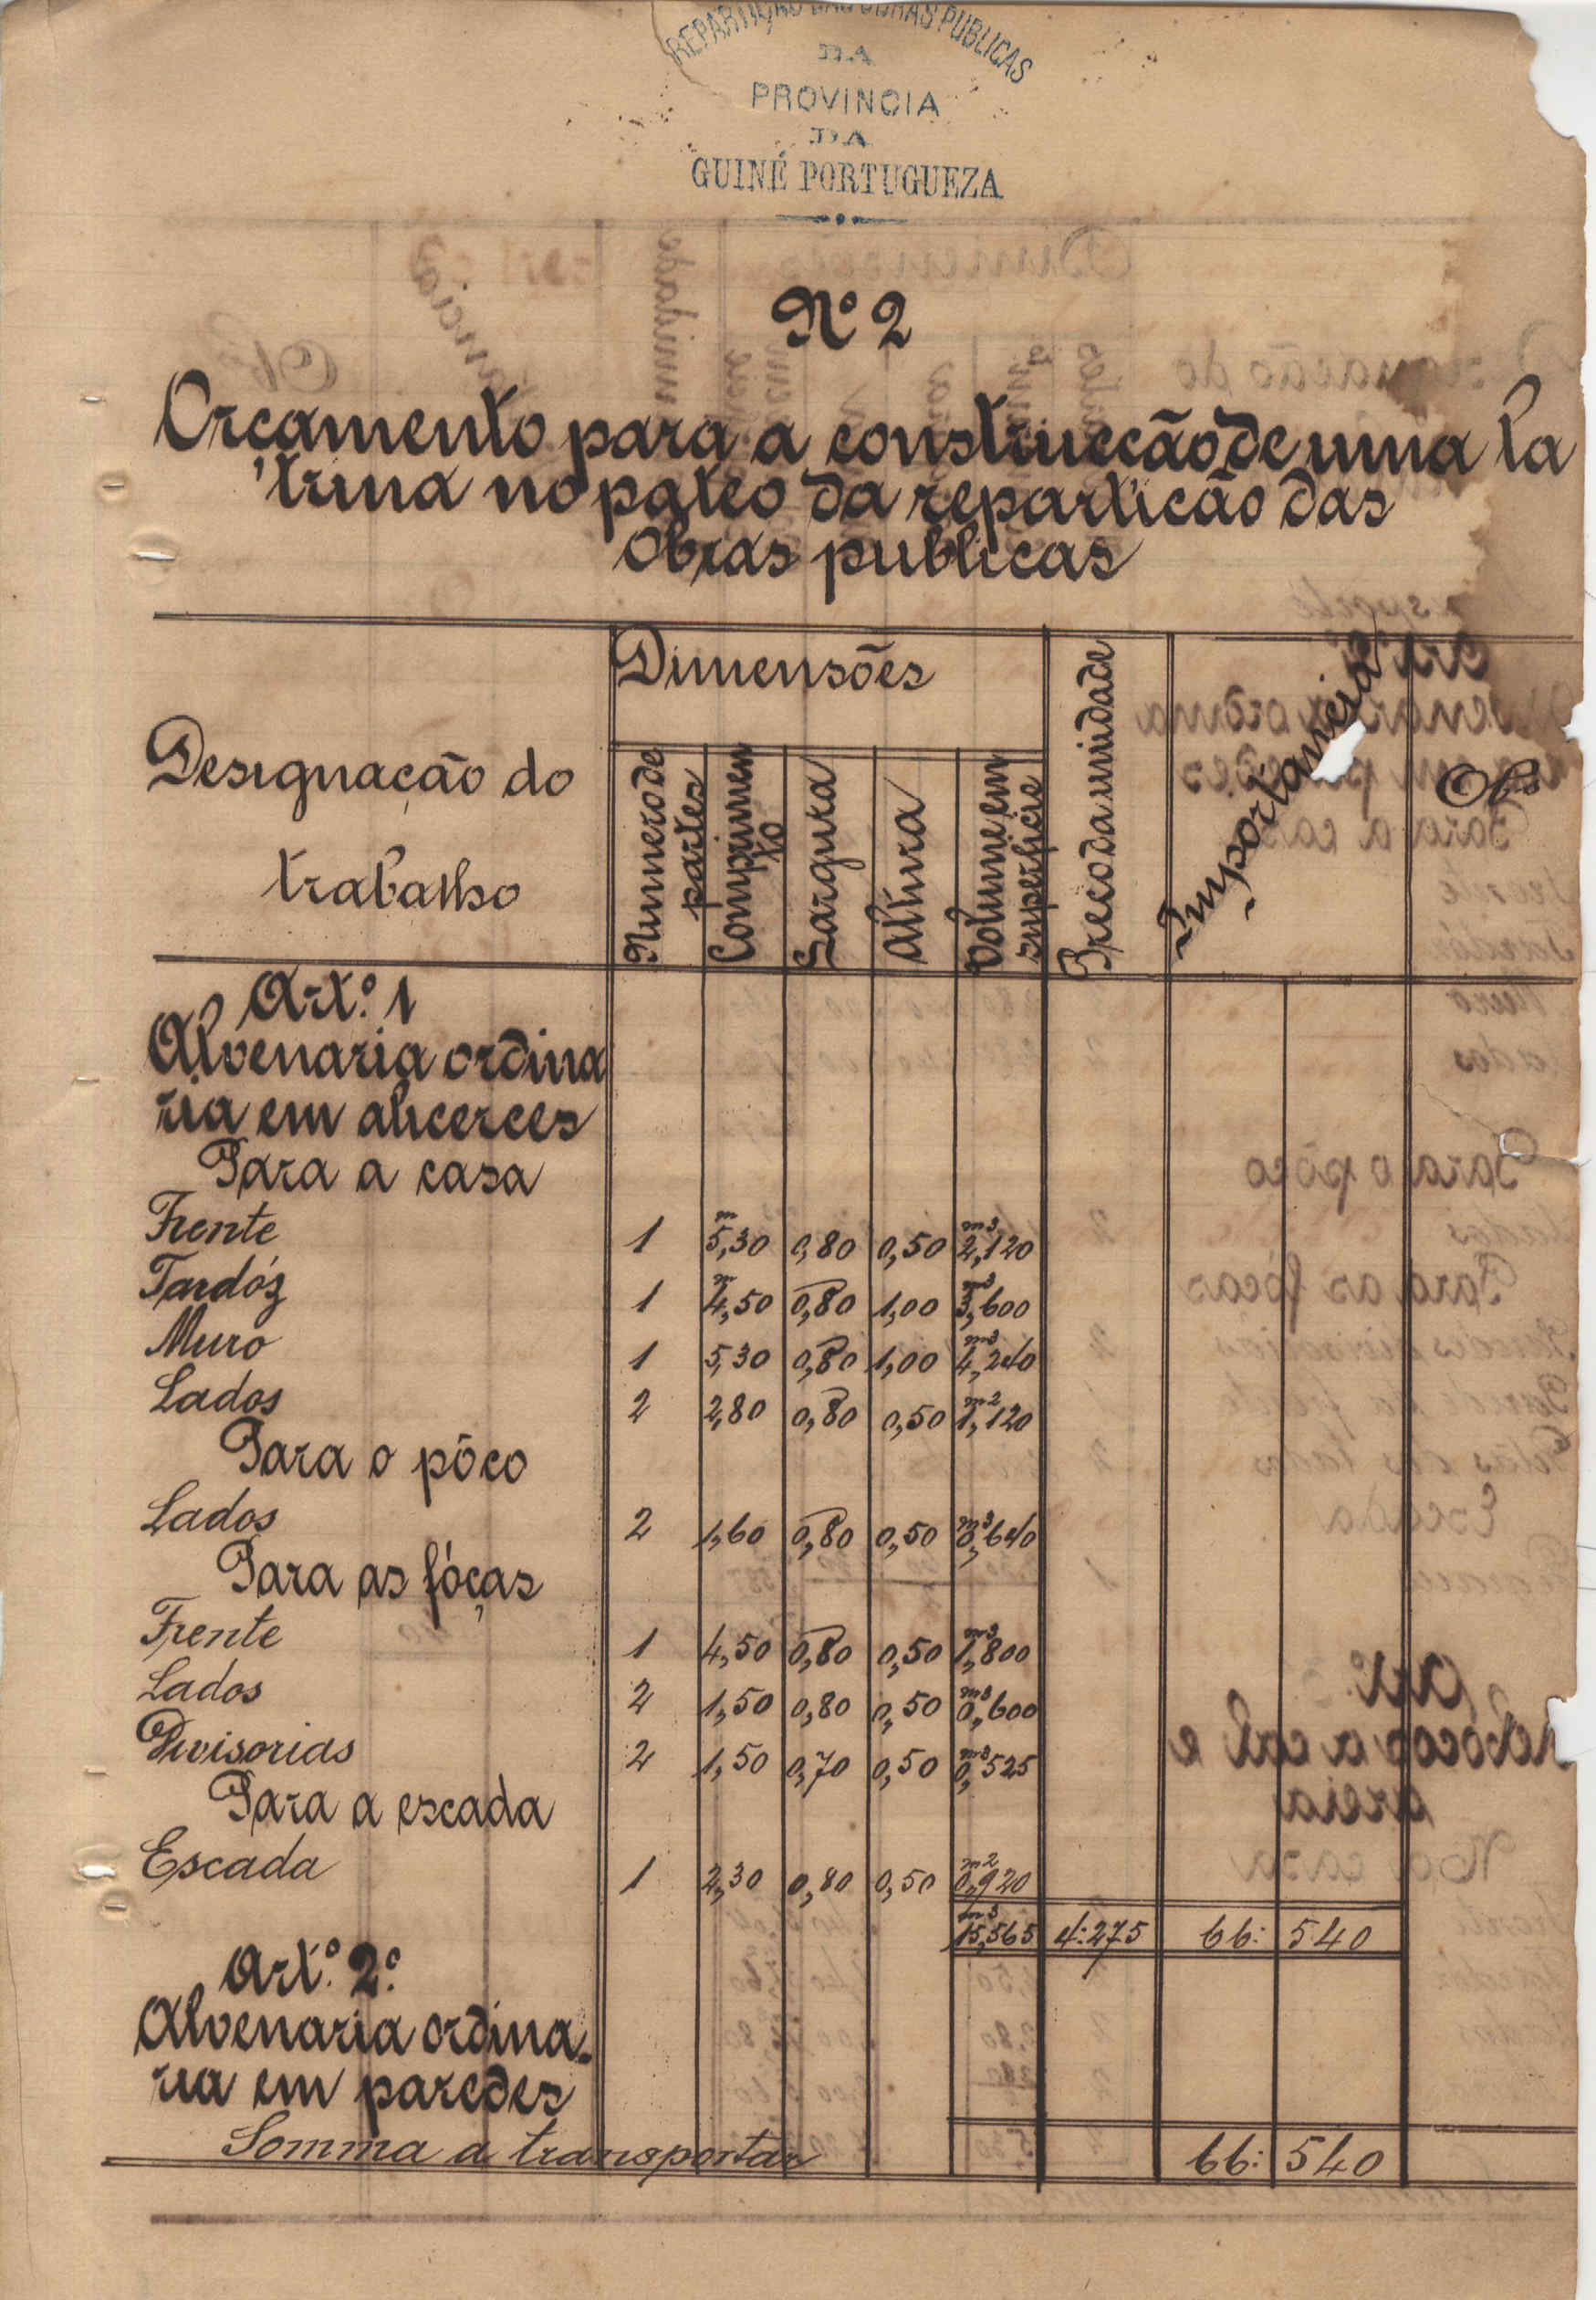 REPARTIÇÃO DAS OBRAS PUBLICAS
DA
PROVINCIA
DA
GUINÉ PORTUGUEZA
Nº 2
Orçamento para a construcção de uma la
trina no pateo da repartição das
Obras publicas
Designação do trabalho | Dimensões | Preço da unidade | Importancia | Obs
Numero de partes | Comprimento | Largura | Altura | Volume em superficie
Art.º 1
Alvenaria ordina
ria em alicerces
Para a casa
Frente 1 5,30 0,80 0,50 2,120
Tardóz 1 4,50 0,80 1,00 3,600
Muro 1 5,30 0,80 1,00 4,240
Lados 2 2,80 0,80 0,50 1,120
Para o pôço
Lados 2 1,60 0,80 0,50 0,640
Para as fóças
Frente 1 4,50 0,80 0,50 1,800
Lados 2 1,50 0,80 0,50 0,600
Divisorias 2 1,50 0,70 0,50 0,525
Para a escada
Escada 1 2,30 0,80 0,50 0,920
15,565 4:275 66: 540
Art.º 2º
Alvenaria ordina-
ria em paredes
Somma a transportar 66: 540